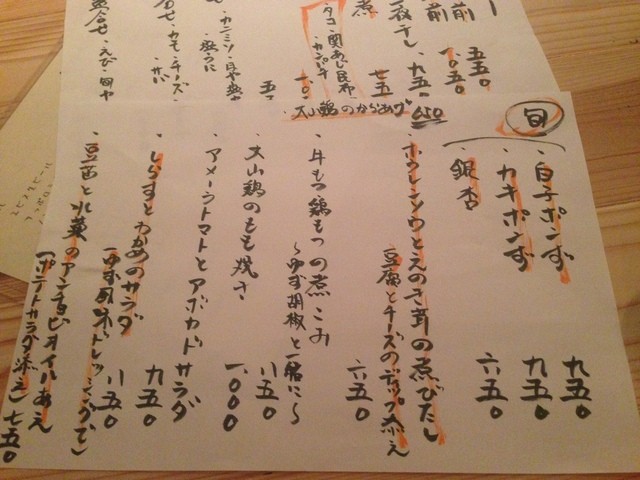 旬
・白子ポンず 九五〇
・カキポンず 九五〇
・銀杏 六五〇
・ホウレンソウとえのき茸の煮びたし
豆腐とチーズのディップ添え 六五〇
・牛もつ鶏もつの煮こみ
〜ゆず胡椒と一緒に〜 八五〇
・大山鶏のもも焼き 一、〇〇〇
・アメーラトマトとアボカドサラダ 九五〇
・しらすとわかめのサラダ
(ゆず風味ドレッシングで) 八五〇
・豆苗と水菜のアンチョビオイルあえ
(ポテトサラダ添え) 七五〇
・大山鶏のからあげ 650
前 五五〇
前 一、〇五〇
干し、九五〇
煮 七五
タコ・関あじ昆布
・カンパチ
・カニミソ
・チーズ
・えび